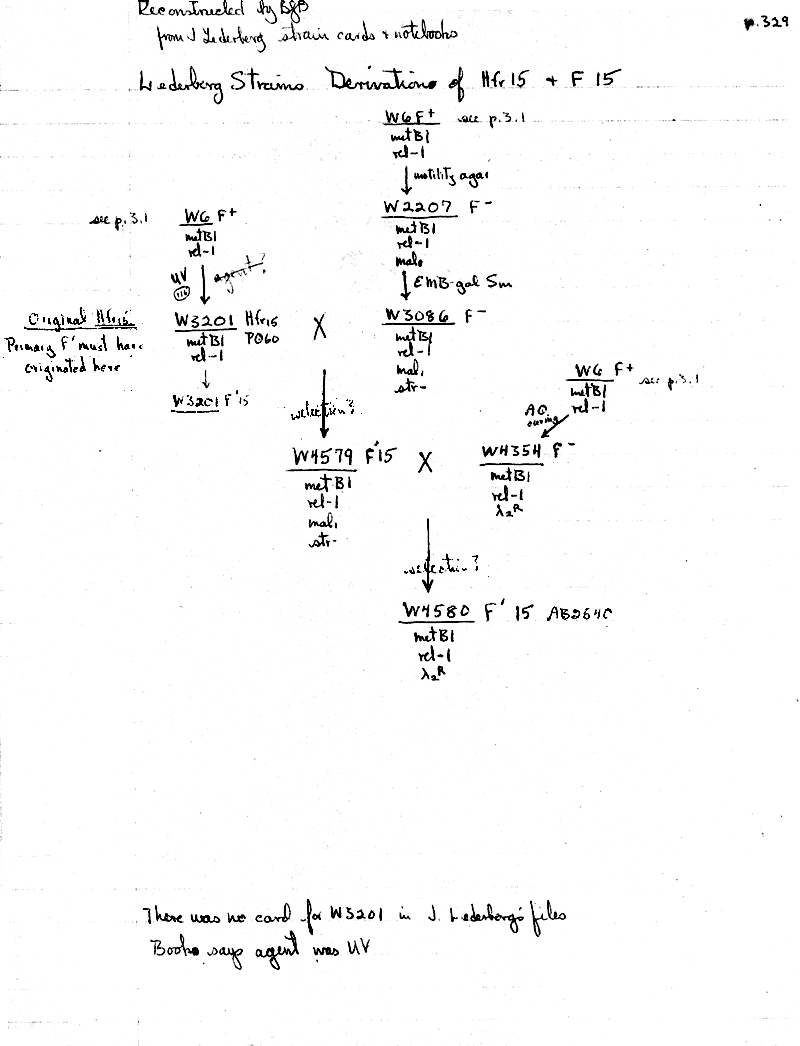 Reconstructed by BJB
from J Lederberg strain cards & notebooks
p.329
Lederberg Strains Derivations of Hfr15 + F 15
W6 F+ see p.3.1
metB1
rel-1
motility agar
W2207 F-
metB1
rel-1
mal,
EMB-gal Sm
W3086 F-
metB1
rel-1
mal,
str-
see p.3.1 W6 F+
metB1
rel-1
UV agent?
Original Hfr15
Primary F' must have
originated here
W3201 Hfr15 X
metB1 PO60
rel-1
W3201 F'15
selection?
W6 F+ see p.3.1
metB1
rel-1
AO
curing
W4579 F'15 X
metB1
rel-1
mal,
str-
W4354 F-
metB1
rel-1
λ2R
selection?
W4580 F' 15
metB1
rel-1
λ2R
There was no card for W3201 in J. Lederberg's files
Books says agent was UV